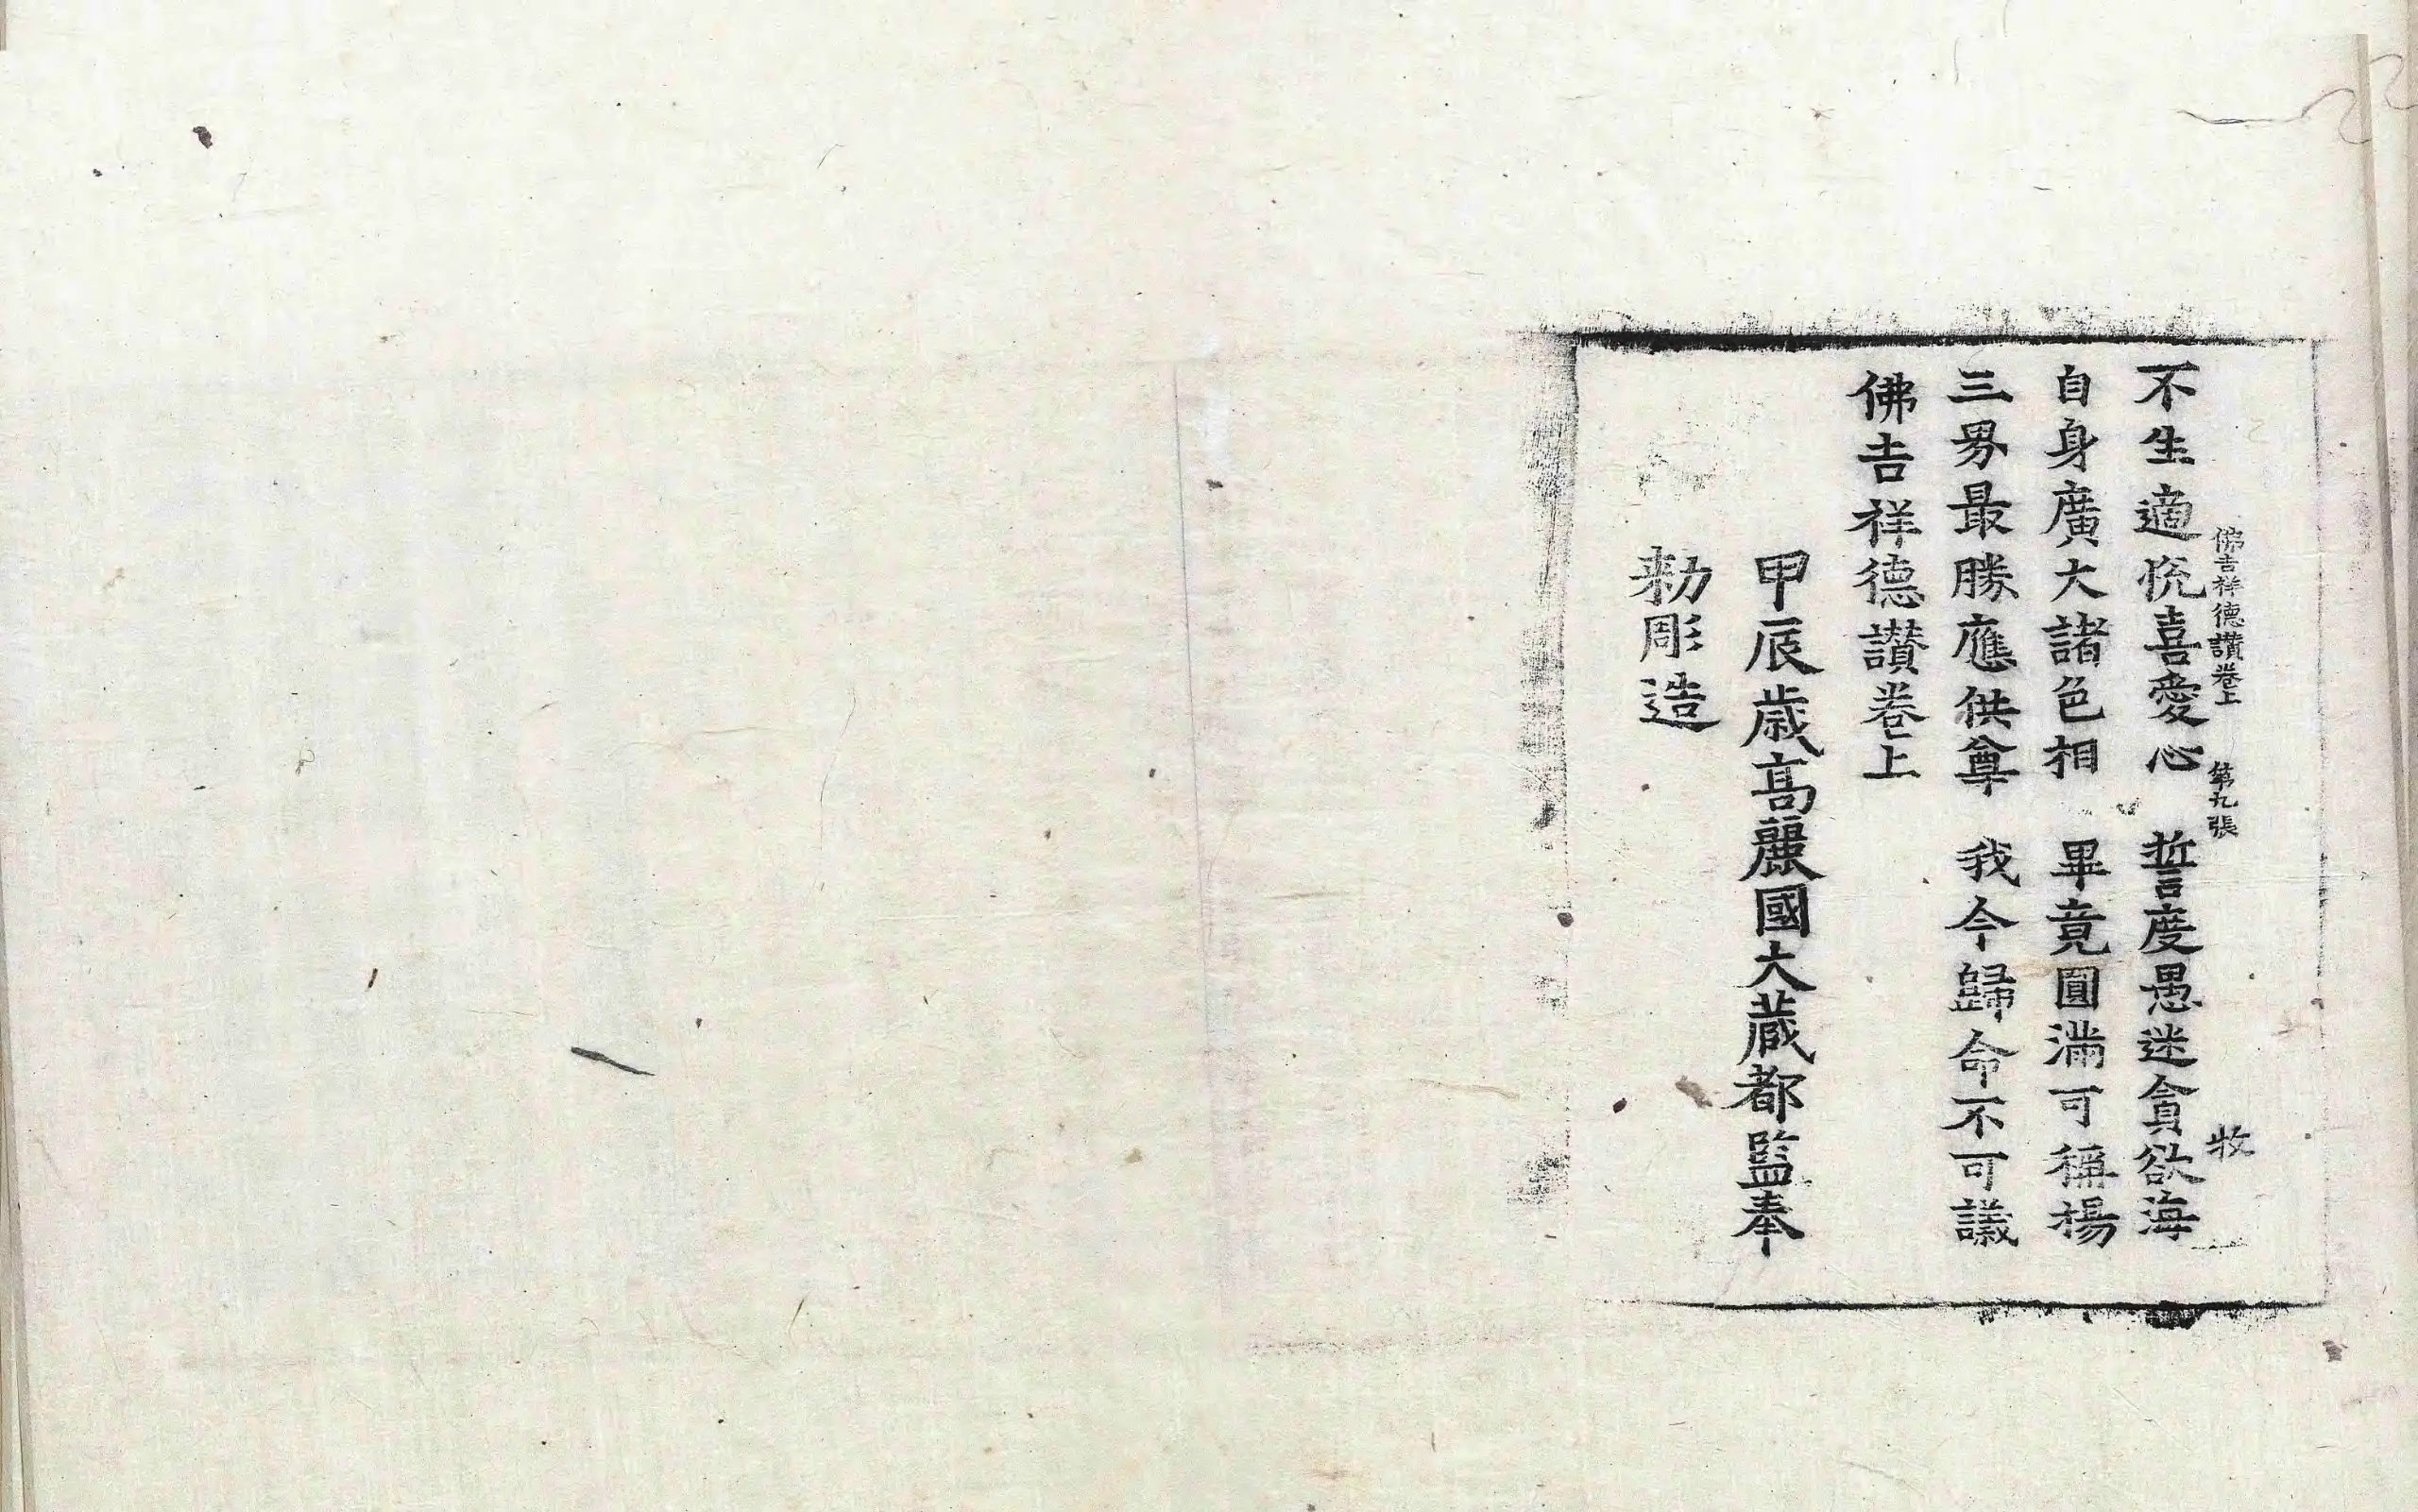 佛吉祥德讃卷上 第九張 牧
不生適悅喜愛心 誓度愚迷貪欲海
自身廣大諸色相 畢竟圓滿可稱揚
三界最勝應供尊 我今歸命不可議
佛吉祥德讃卷上
甲辰歲高麗國大藏都監奉
勑彫造